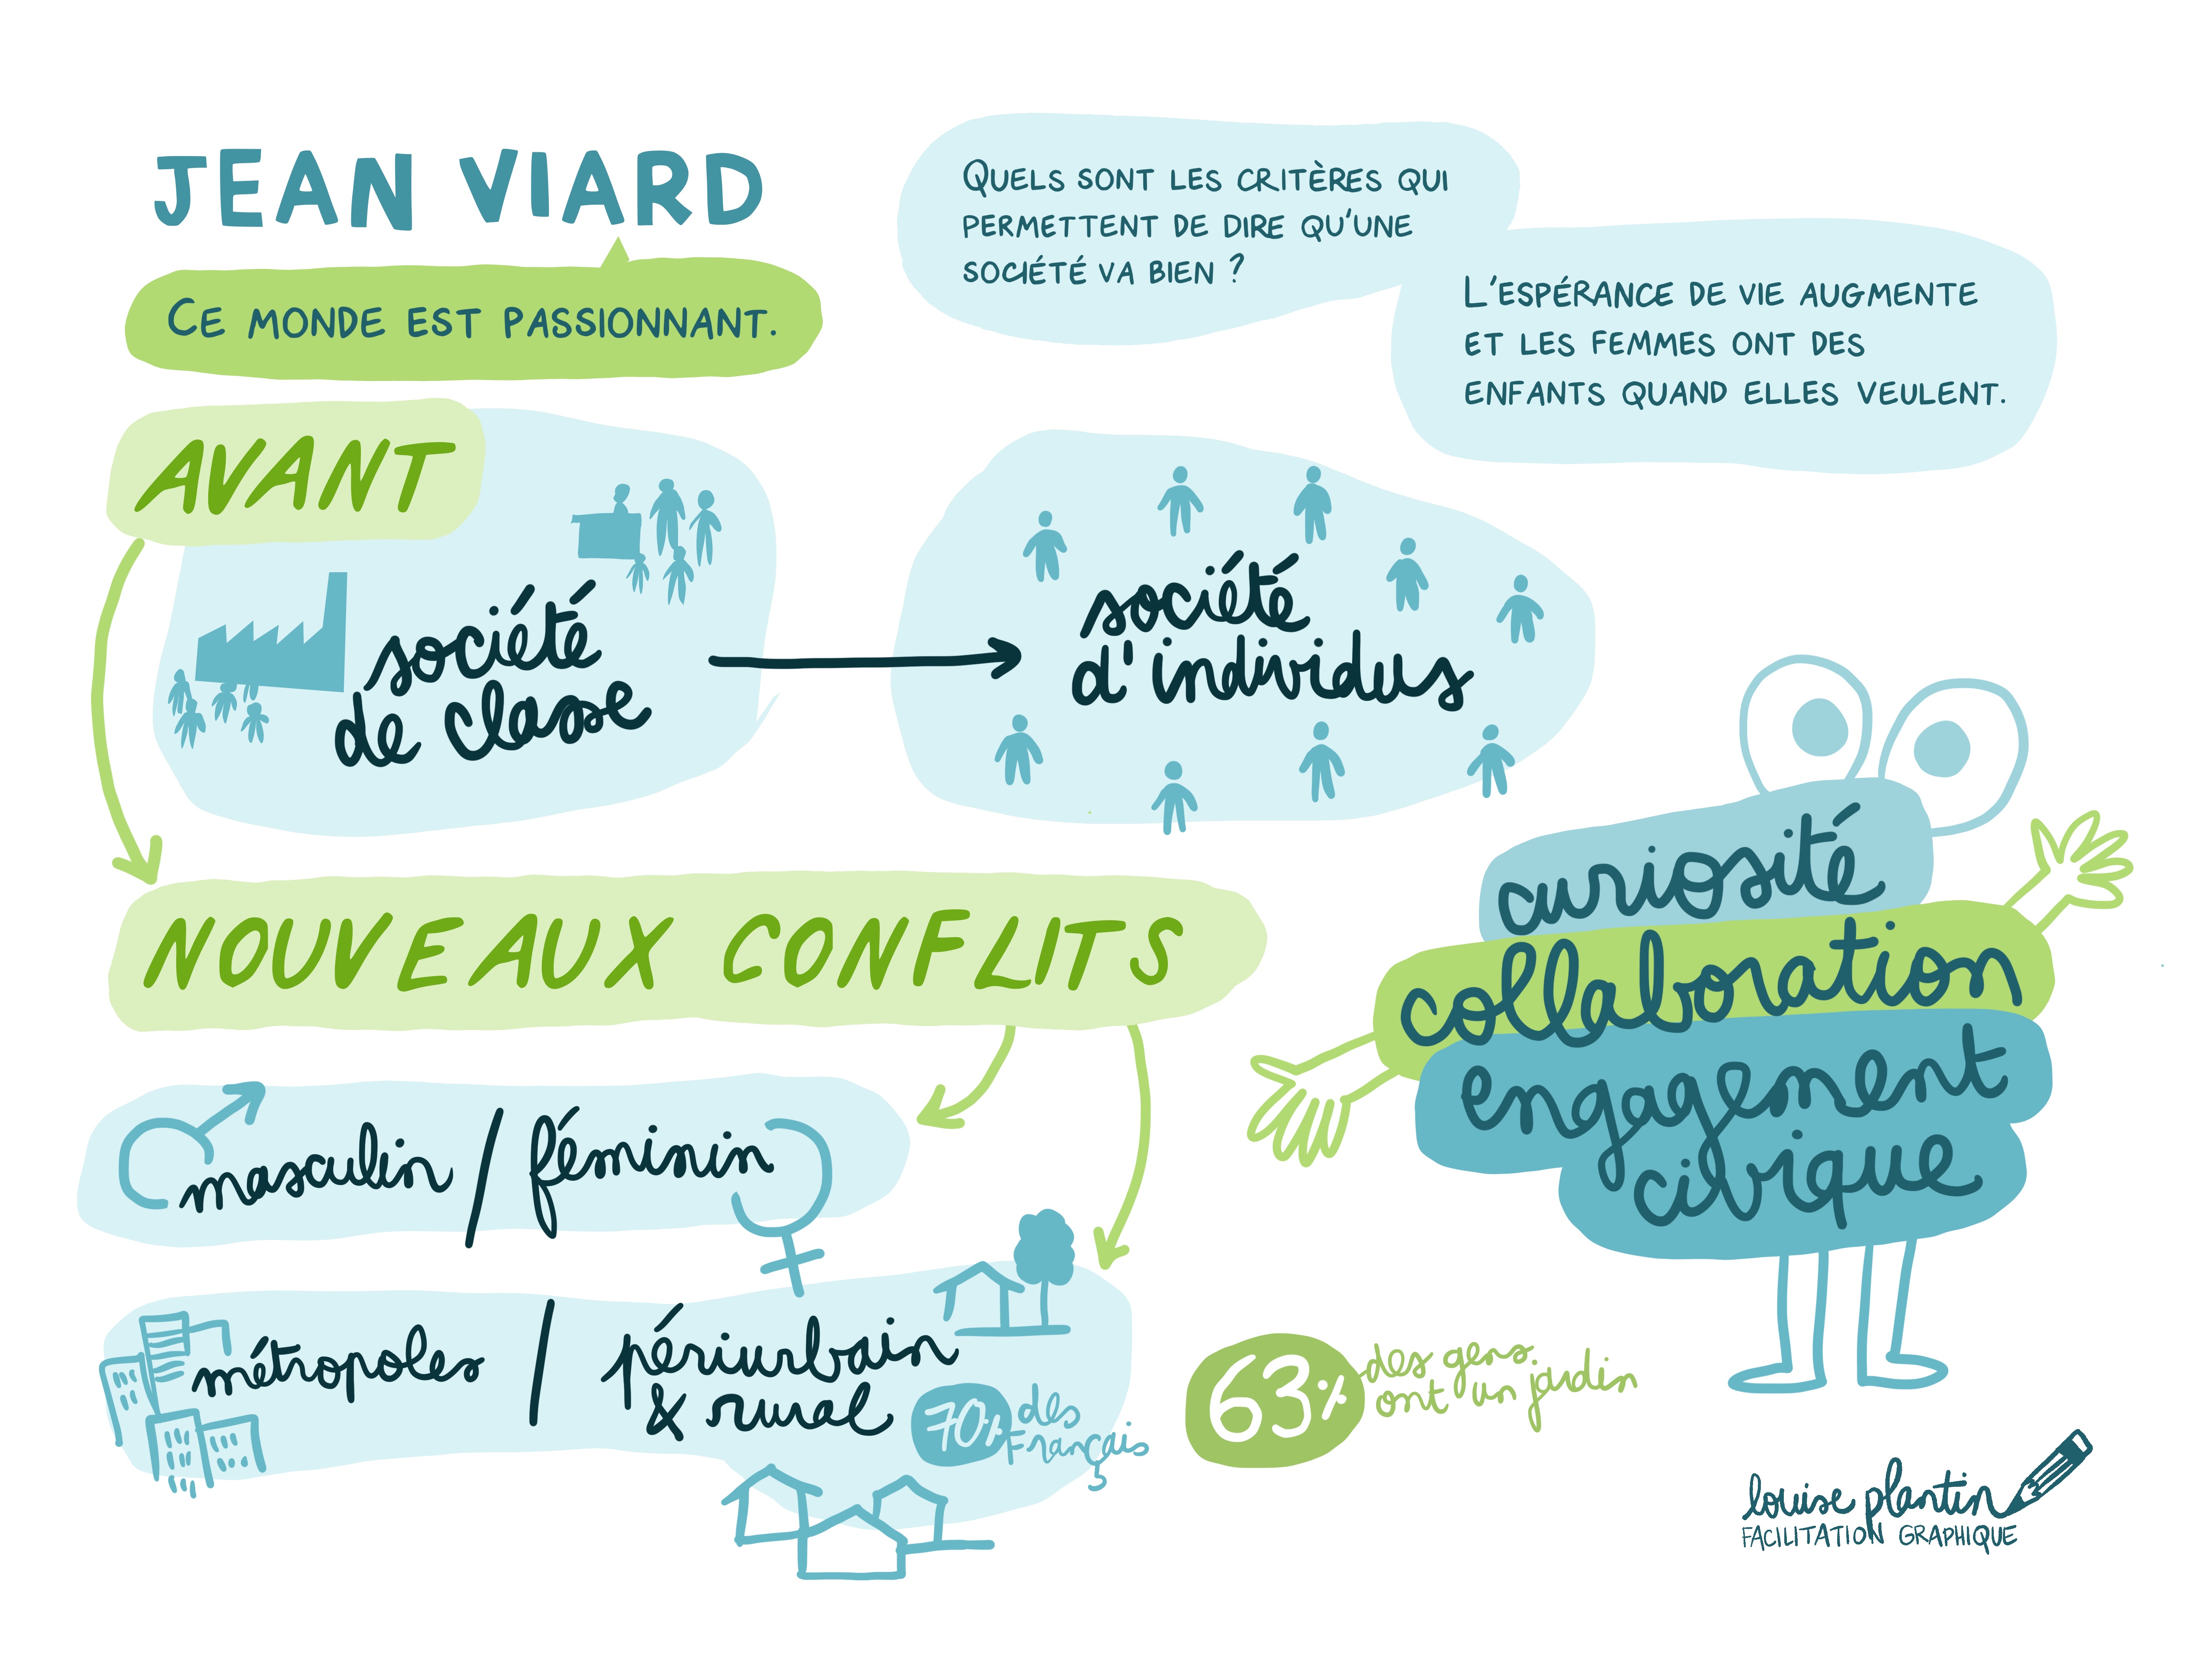 JEAN VIARD
CE MONDE EST PASSIONNANT.
QUELS SONT LES CRITÈRES QUI
PERMETTENT DE DIRE QU'UNE
SOCIÉTÉ VA BIEN ?
L'ESPÉRANCE DE VIE AUGMENTE
ET LES FEMMES ONT DES
ENFANTS QUAND ELLES VEULENT.
AVANT
société
de classe
société
d'individus
NOUVEAUX CONFLITS
masculin / féminin
métropoles / périurbain
& rural
70% des
Français
63% des gens
ont un jardin
curiosité
collaboration
engagement
civique
louise plantin
FACILITATION GRAPHIQUE